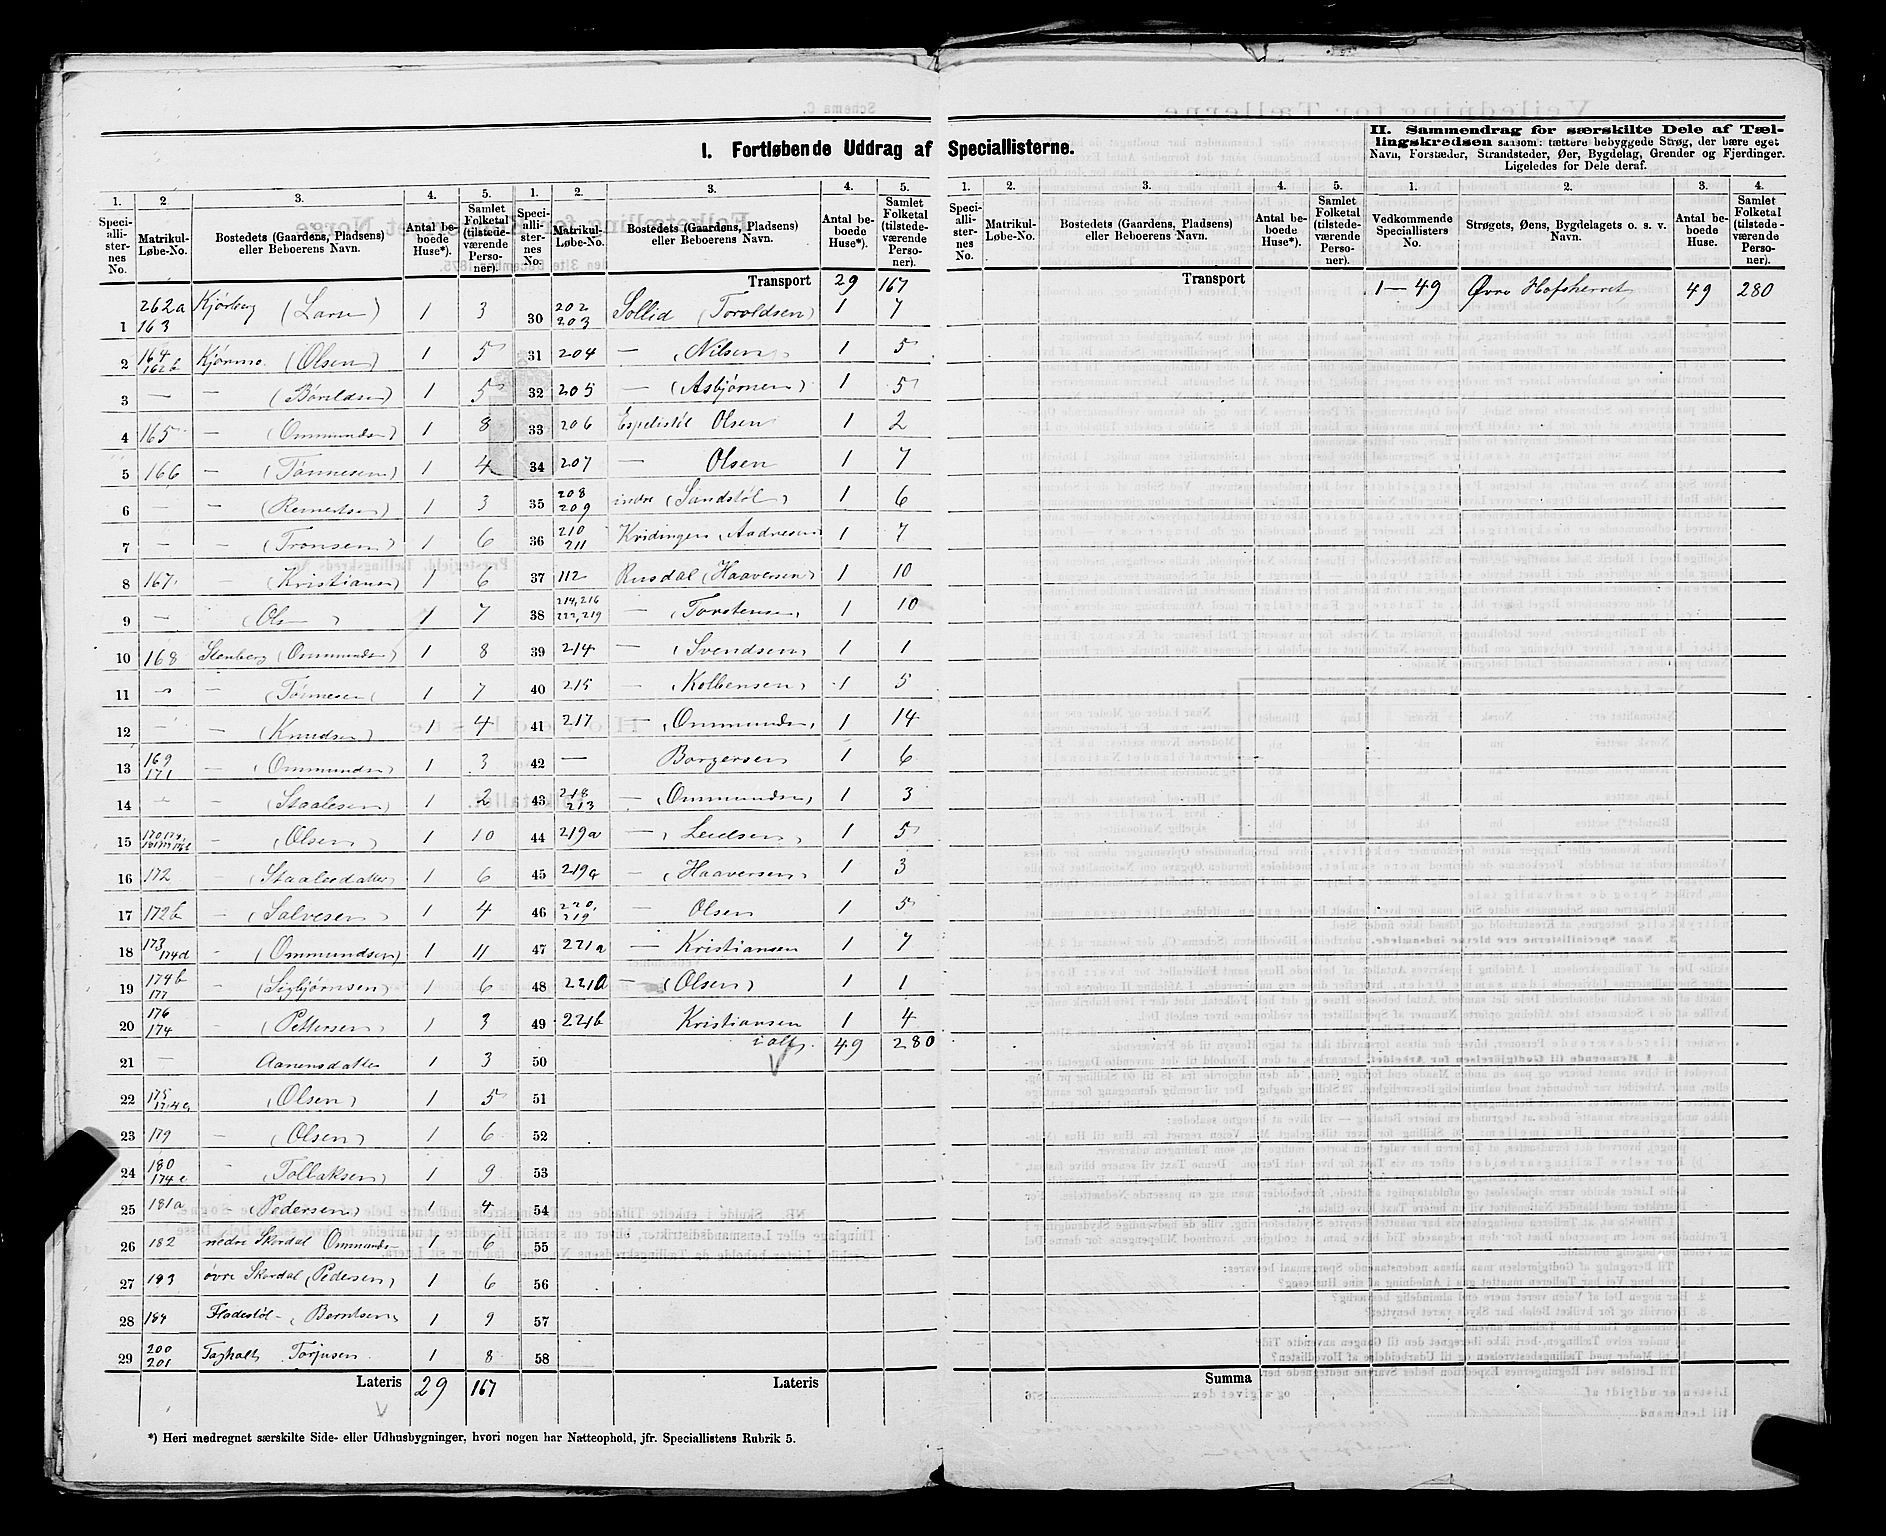 I. Fortløbende Uddrag af Speciallisterne.
II. Sammendrag for særskilte Dele af Tællingskredsen saasom: tættere bebyggede Strøg, der bære eget Navn, Forstæder, Strandsteder, Øer, Bygdelag, Grender og Fjerdinger. Ligeledes for Dele deraf.
1. 2 3. 4. 5. 1. 2. 3. 4. 5. 1. 2. 3. 4. 5. 1. 2. 3. 4.
Speciallisternes No. Matrikul-Løbe-No. Bostedets (Gaardens, Pladsens) eller Beboerens Navn. Antal beboede Huse*). Samlet Folketal (tilstedeværende Personer).
Speciallisternes No. Matrikul-Løbe-No. Bostedets (Gaardens, Pladsens) eller Beboerens Navn. Antal beboede Huse*). Samlet Folketal (tilstedeværende Personer).
Speciallisternes No. Matrikul-Løbe-No. Bostedets (Gaardens, Pladsens) eller Beboerens Navn. Antal beboede Huse*). Samlet Folketal (tilstedeværende Personer).
Vedkommende Speciallisters No. Strøgets, Øens, Bygdelagets o. s. v. Navn. Antal beboede Huse. Samlet Folketal (tilstedeværende Personer).
1 262a 163 Kjørberg (Larse 1 3
2 164 162b Kjørmo (Olsen) 1 5
3 — — (Børildsen) 1 5
4 165 — (Ommundsen) 1 8
5 166 — (Tønnesen) 1 4
6 — — (Reinertsen) 1 3
7 — — (Tronsen) 1 6
8 167 — (Kristiansen) 1 6
9 — (Ols— ) 1 7
10 168 Stenberg (Ommundsen) 1 8
11 — — (Tønnesen) 1 7
12 — — (Knudsen) 1 4
13 169 171 — (Ommundsen) 1 3
14 — — (Staalesen) 1 2
15 — (Olsen) 1 10
16 172 — (Staalesdatter) 1 6
17 172b — (Salvesen) 1 4
18 173 174d — (Ommundsen) 1 11
19 174b 177 — (Sigbjørnsen) 1 6
20 176 174 — (Pettersen) 1 3
21 — Aanensdatter 1 3
22 175 174a (Olsen) 1 5
23 179 — (Olsen) 1 6
24 180 174c — (Tollaksen) 1 9
25 181a — (Pedersen) 1 4
26 182 nedre Skordal Ommunds— 1 6
27 183 øvre Skordal (Pedersen) 1 6
28 184 Fladestøl — (Berntsen) 1 9
29 200 201 Taghalt Torjusen 1 8
Lateris 29 167
Transport 29 167
30 202 203 Sollid (Toroldsen) 1 7
31 204 — (Nilsen) 1 5
32 205 — (Asbjørnsen) 1 5
33 206 Espelistøl Olsen 1 2
34 207 — Olsen 1 7
35 208 209 indre (Sandstøl) 1 6
36 210 211 Kvidingen (Aadnesen) 1 7
37 112 Rusdal (Haaversen) 1 10
38 214, 216 222, 219 — (Torstensen) 1 10
39 214 — (Svendsen) 1 1
40 215 — (Kolbensen) 1 5
41 217 — (Ommundsen) 1 14
42 — Borgersen 1 6
43 218 213 — (Ommundsen) 1 3
44 219a — (Leidsen) 1 5
45 219c — (Haaversen) 1 3
46 220, 219 — Olsen 1 5
47 221a — Kristiansen 1 7
48 221a — (Olsen) 1 1
49 221b Kristiansen 1 4
50 i alt 49 280
51
52
53
54
55
56
57
58
Lateris
Transport
Summa
1—49 Øvre Hofsherret 49 280
*) Heri medregnet særskilte Side- eller Udhusbygninger, hvori nogen har Natteophold, jfr. Speciallistens Rubrik 5.